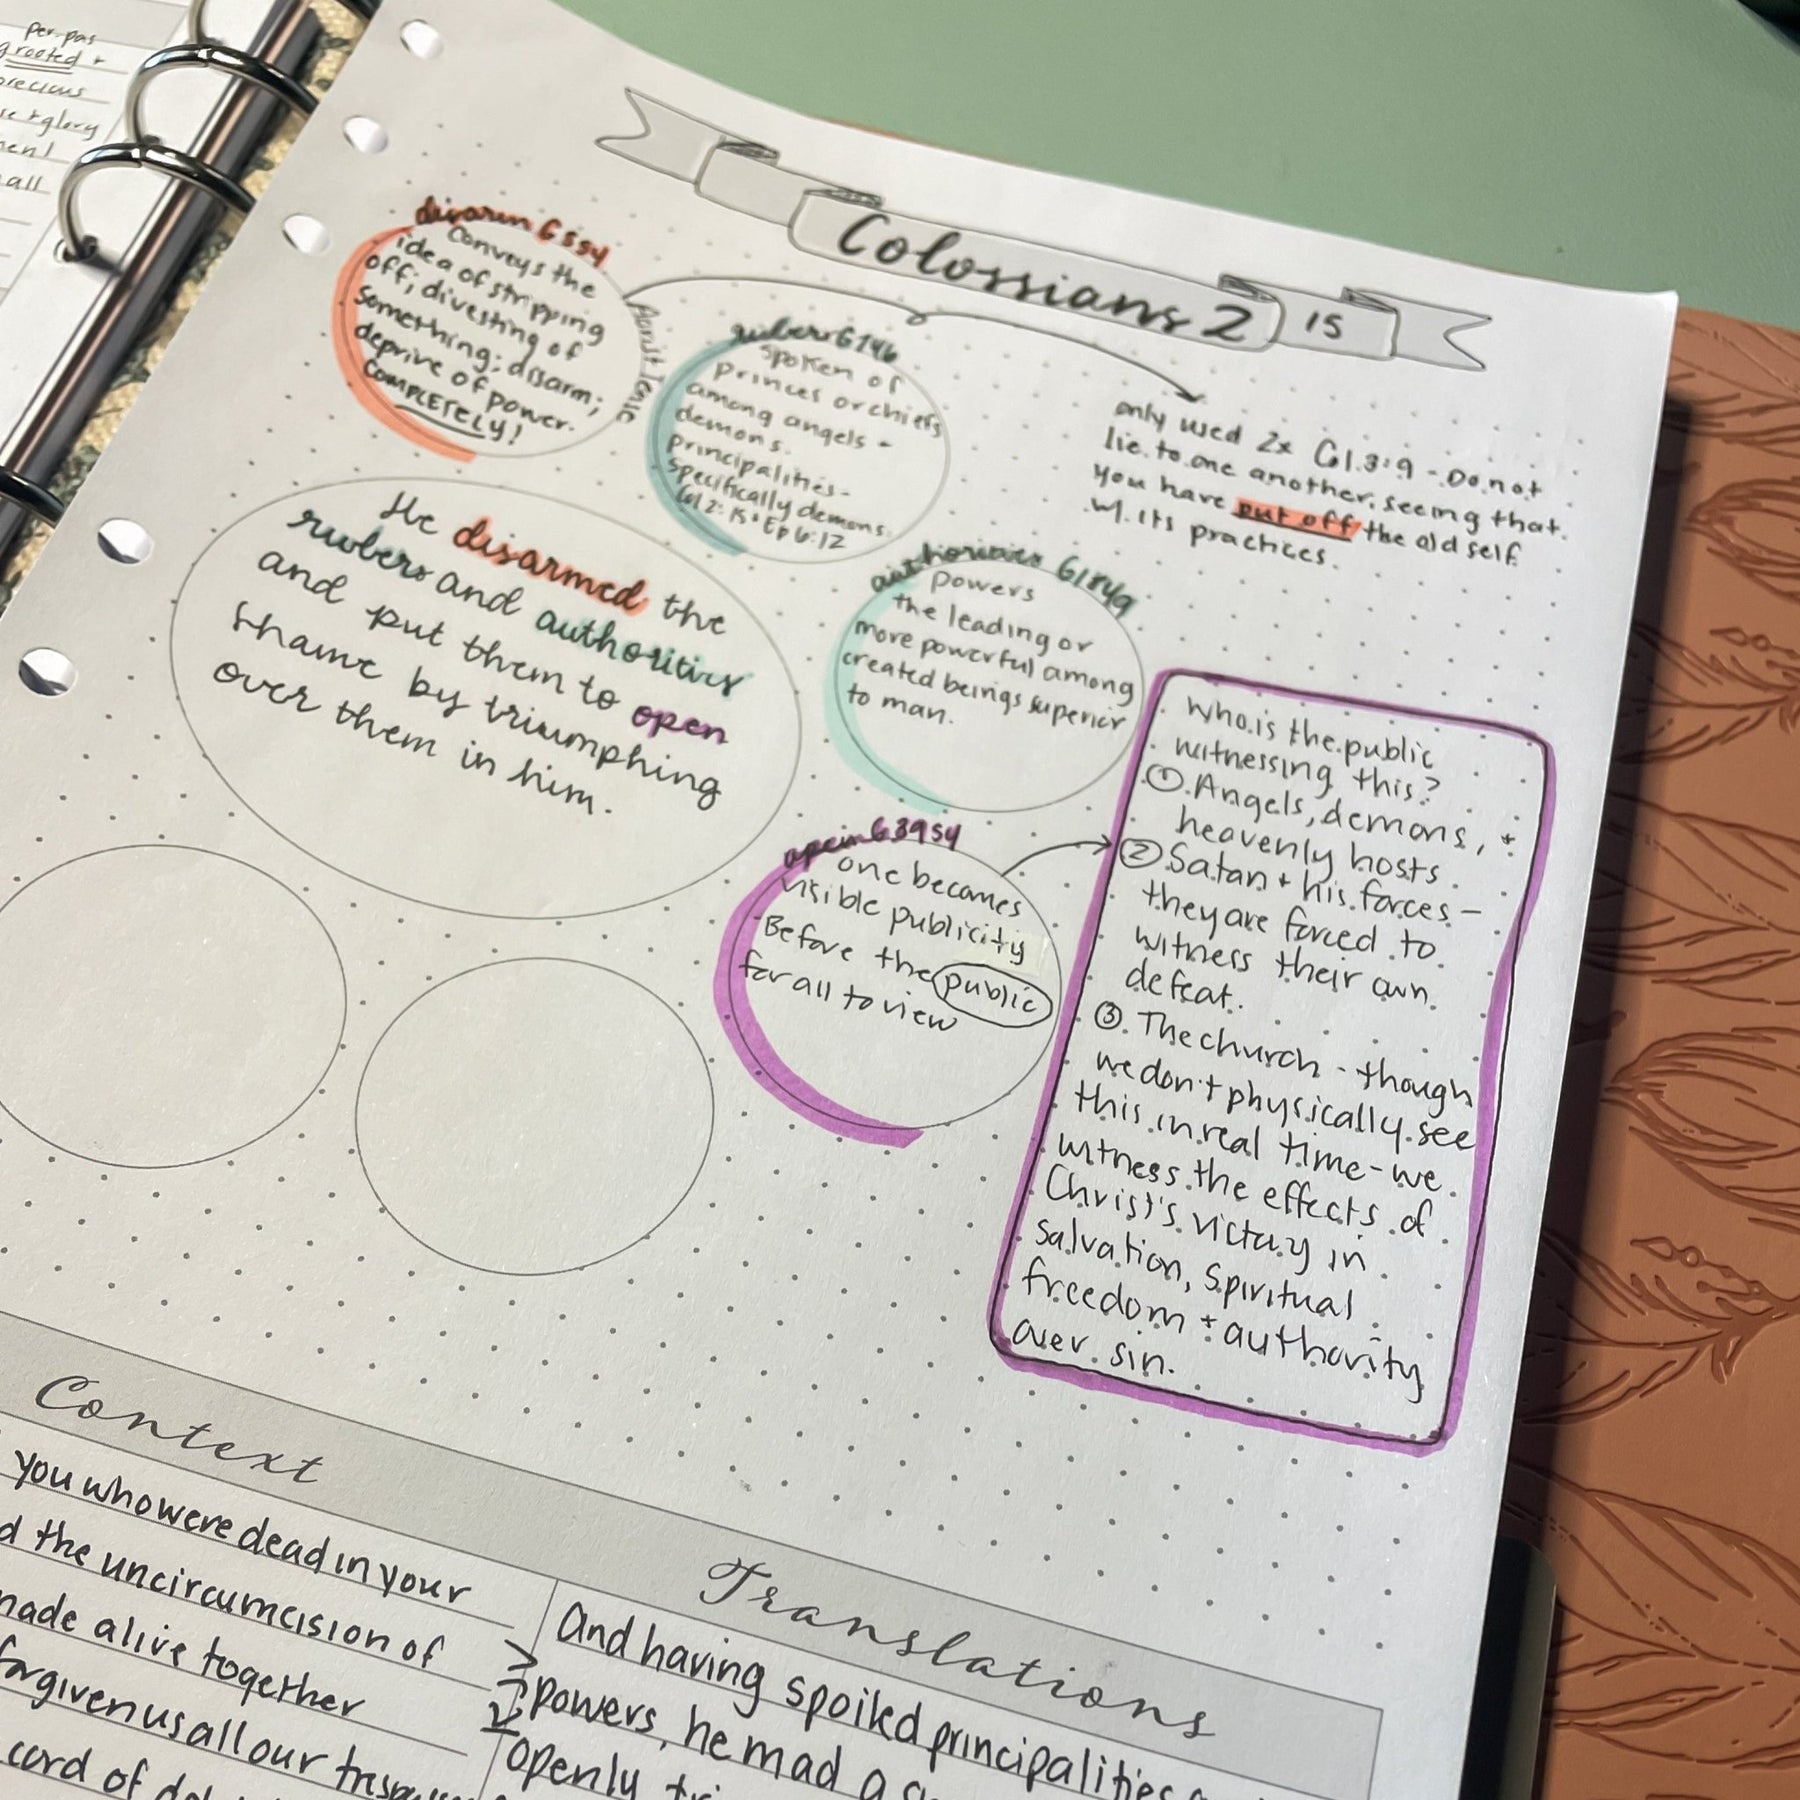 per.pas
rooted +
precious
+ glory
all
Colossians 2
15
disarm G554
Conveys the
idea of stripping
off; divesting of
something; disarm;
deprive of power.
COMPLETELY!
rulers G746
Spoken of
princes or chiefs
among angels +
demons.
principalities-
specifically demons.
Col 2:15 + Ep 6:12
only used 2x Col.3:9 - Do not
lie to one another, seeing that
you have put off the old self
w. its practices.
He disarmed the
rulers and authorities
and put them to open
shame by triumphing
over them in him.
authorities G1849
powers
the leading or
more powerful among
created beings superior
to man.
open G3954
one becomes
visible publicity
-Before the public
for all to view
Who is the public
witnessing this?
① Angels, demons, +
heavenly hosts.
② Satan + his forces -
they are forced to
witness their own
defeat.
③ The church - though
we don't physically see
this in real time - we
witness the effects of
Christ's victory in
salvation, spiritual
freedom + authority
over sin.
Context
you who were dead in your
the uncircumcision of
made alive together
forgiven us all our
cord of
Translations
And having spoiled principalities
powers, he mad a
openly